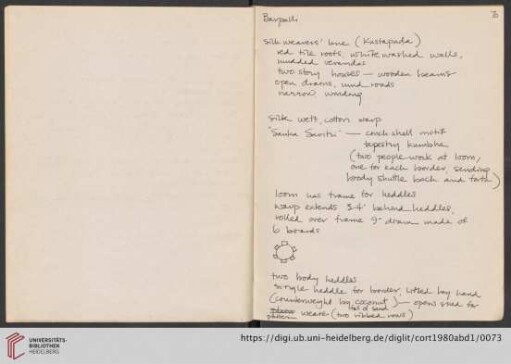 Barpalli
70
silk weavers' lane (Kustapada)
red tile roofs, white washed walls,
mudded verandas
two story houses — wooden beams
open drains, mud roads
narrow, winding
silk weft, cotton warp
'Sanka Santri' — conch shell motif
tapestry kumbha
(two people work at loom,
one for each border, sending
body shuttle back and forth)
loom has frame for heddles
warp extends 3-4' behind heddles,
rolled over frame 9" drum made of
6 boards
two body heddles
single heddle for border, lifted by hand
(counterweight by coconut) — opens shed for
weave (two ribbed rows)
UNIVERSITÄTS-
BIBLIOTHEK
HEIDELBERG
https://digi.ub.uni-heidelberg.de/diglit/cort1980abd1/0073